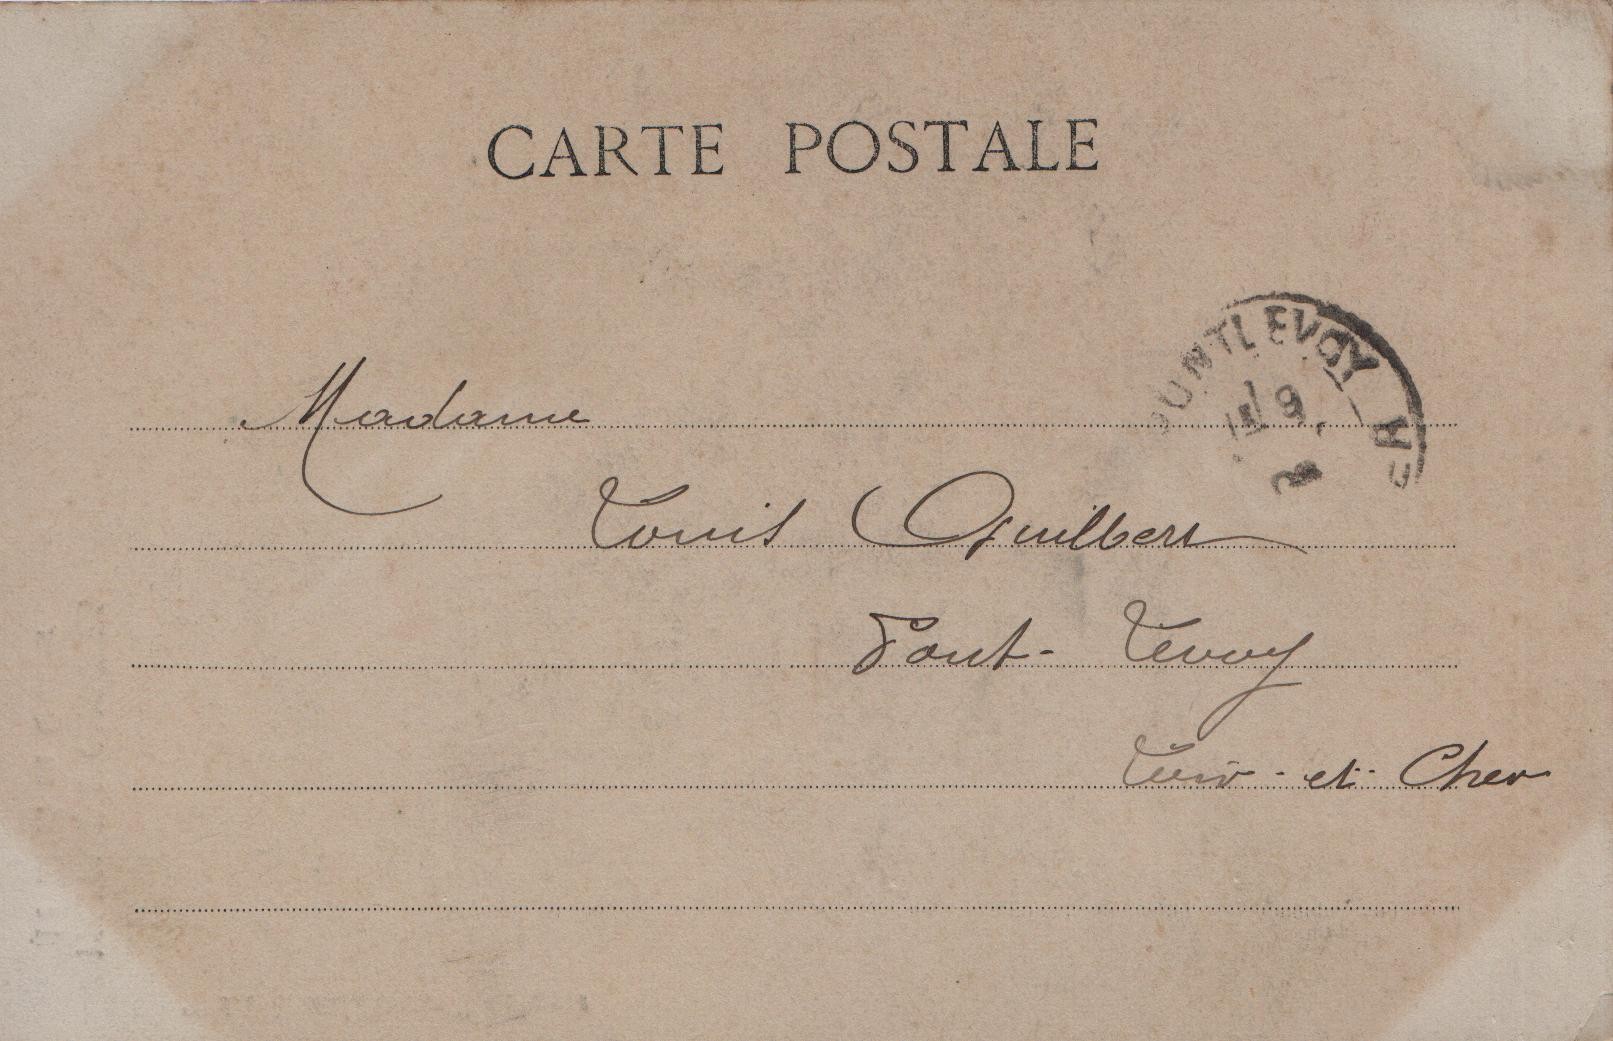 CARTE POSTALE
PONTLEVOY
Madame
Louis Guilbert
Pont-Levoy
Loir-et-Cher